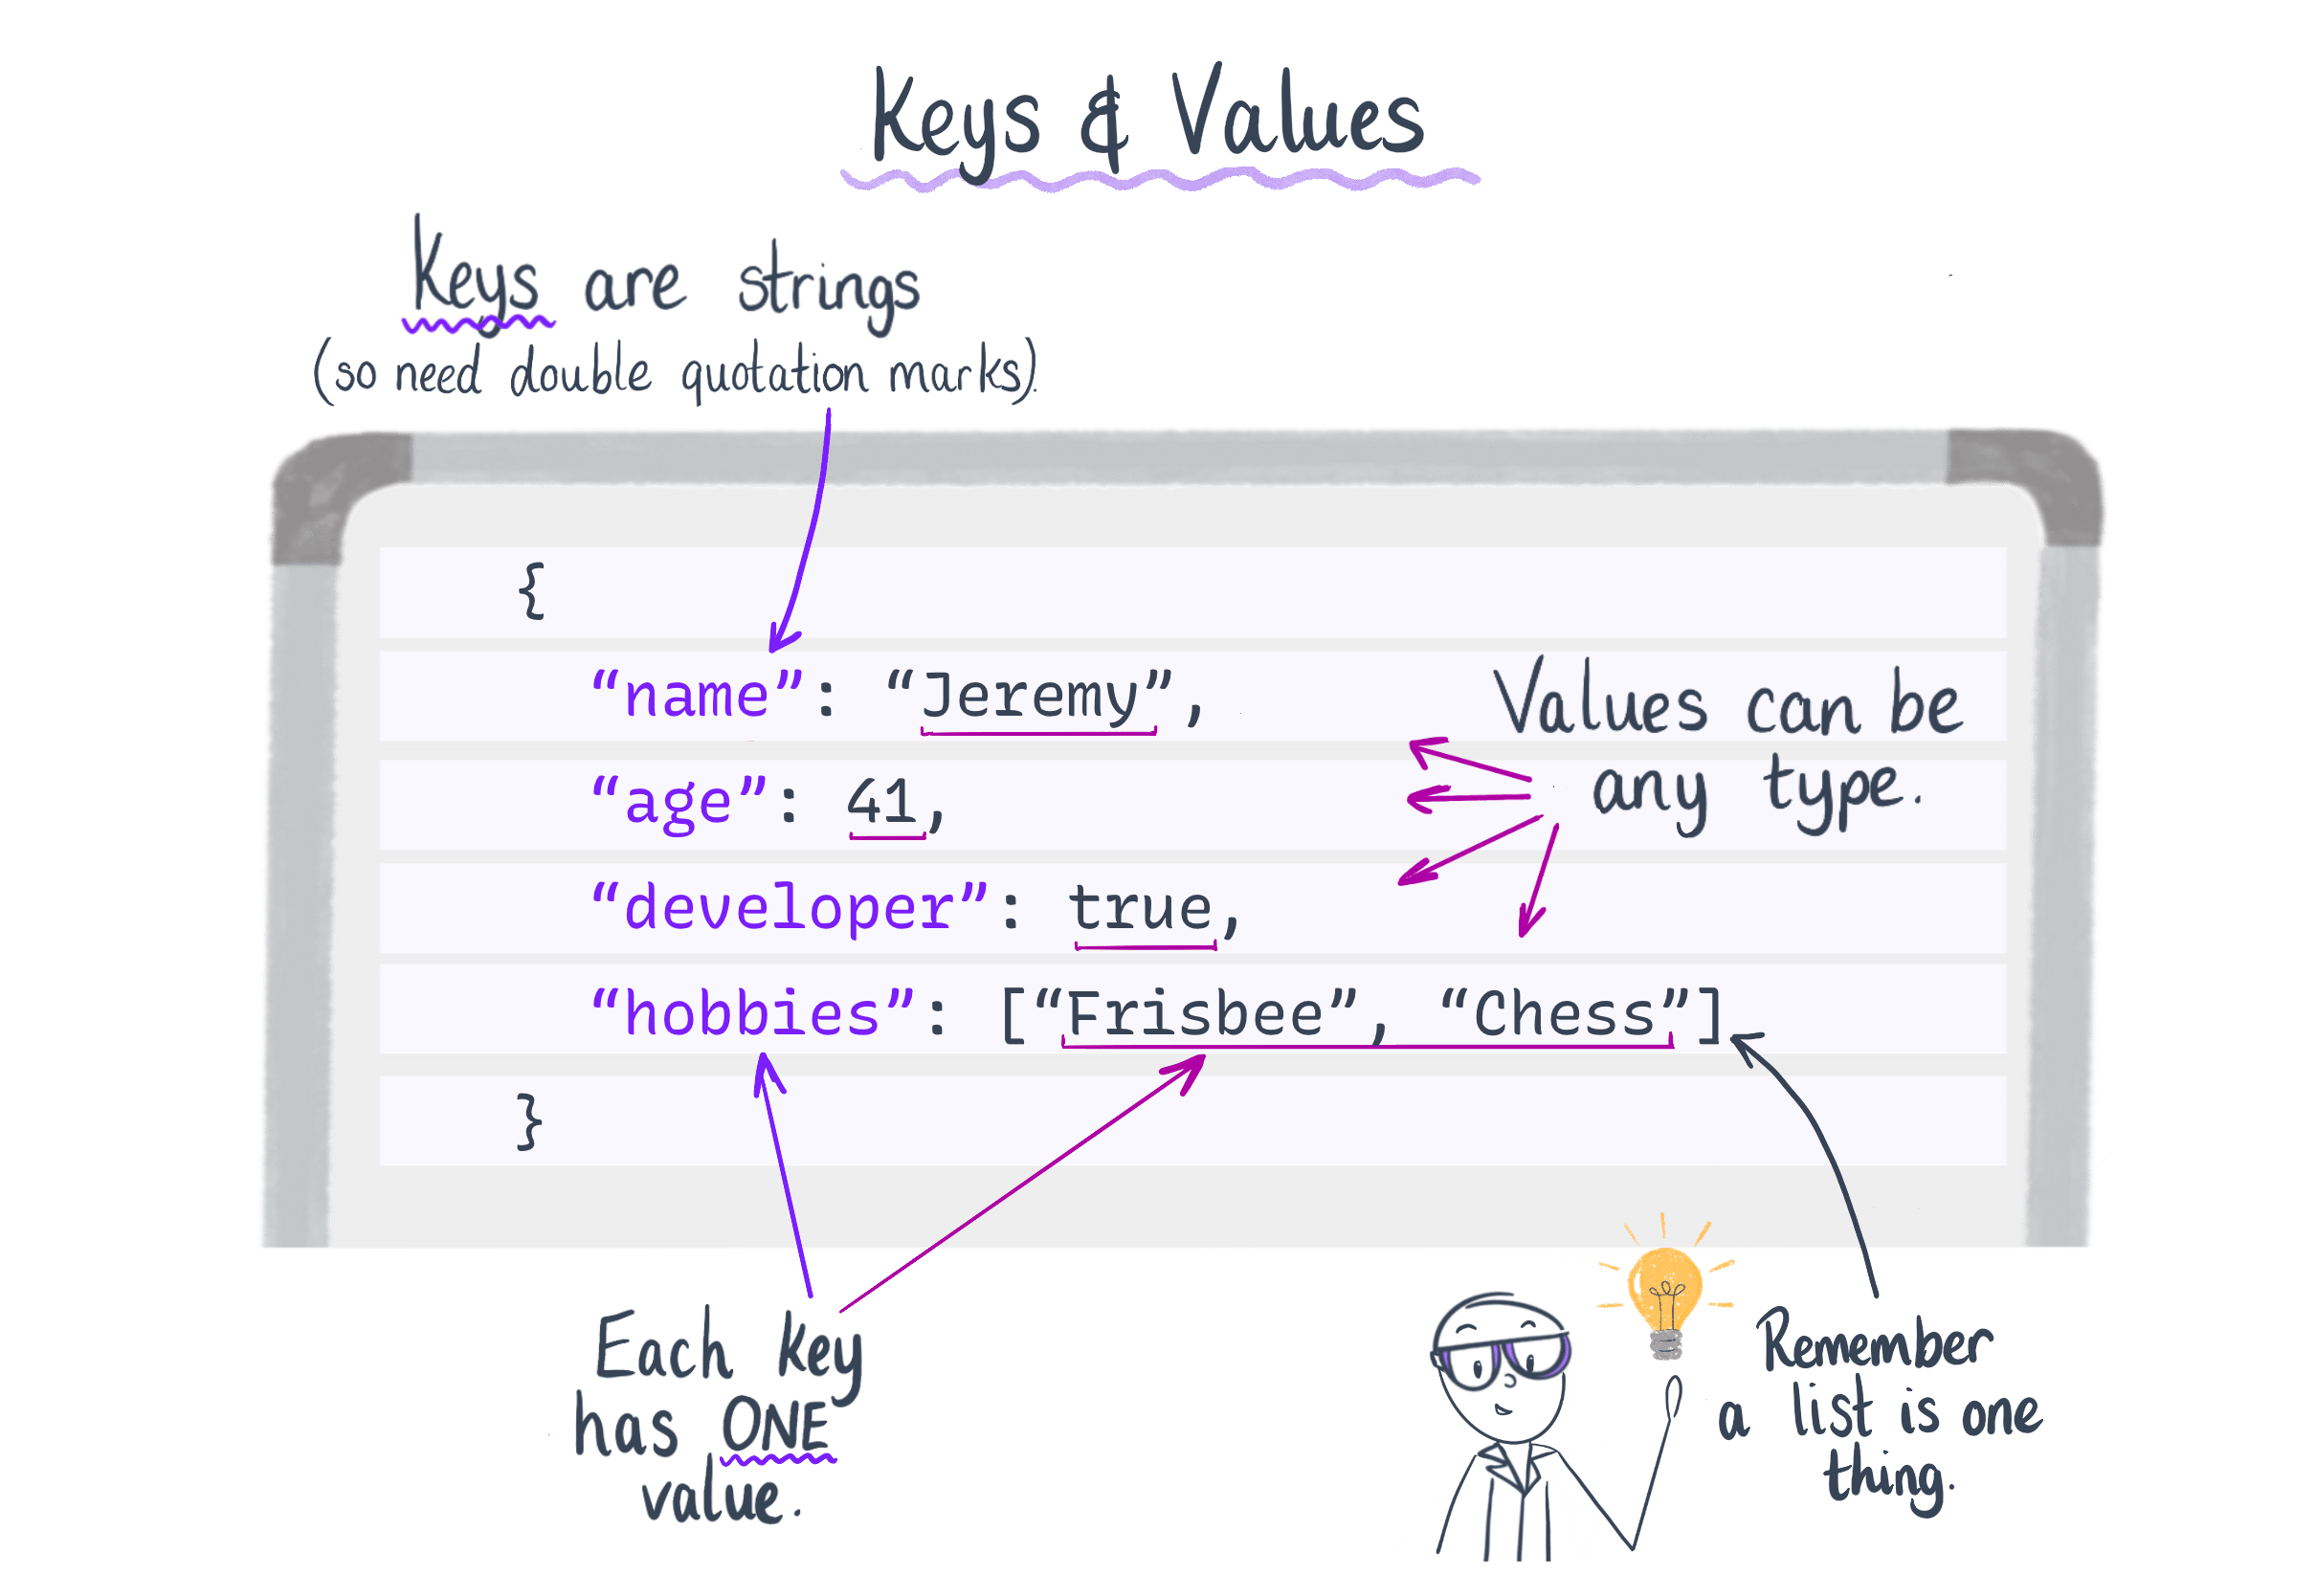 Keys & Values
Keys are strings
(so need double quotation marks).
{
“name”: “Jeremy”,
“age”: 41,
“developer”: true,
“hobbies”: [“Frisbee”, “Chess”]
}
Values can be
any type.
Each key
has ONE
value.
Remember
a list is one
thing.